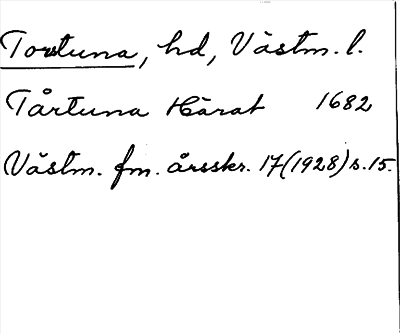 Torstuna, hd, Västm. l.
Tårtuna Härat 1682
Västm. fm. årsskr. 17(1928)s.15.